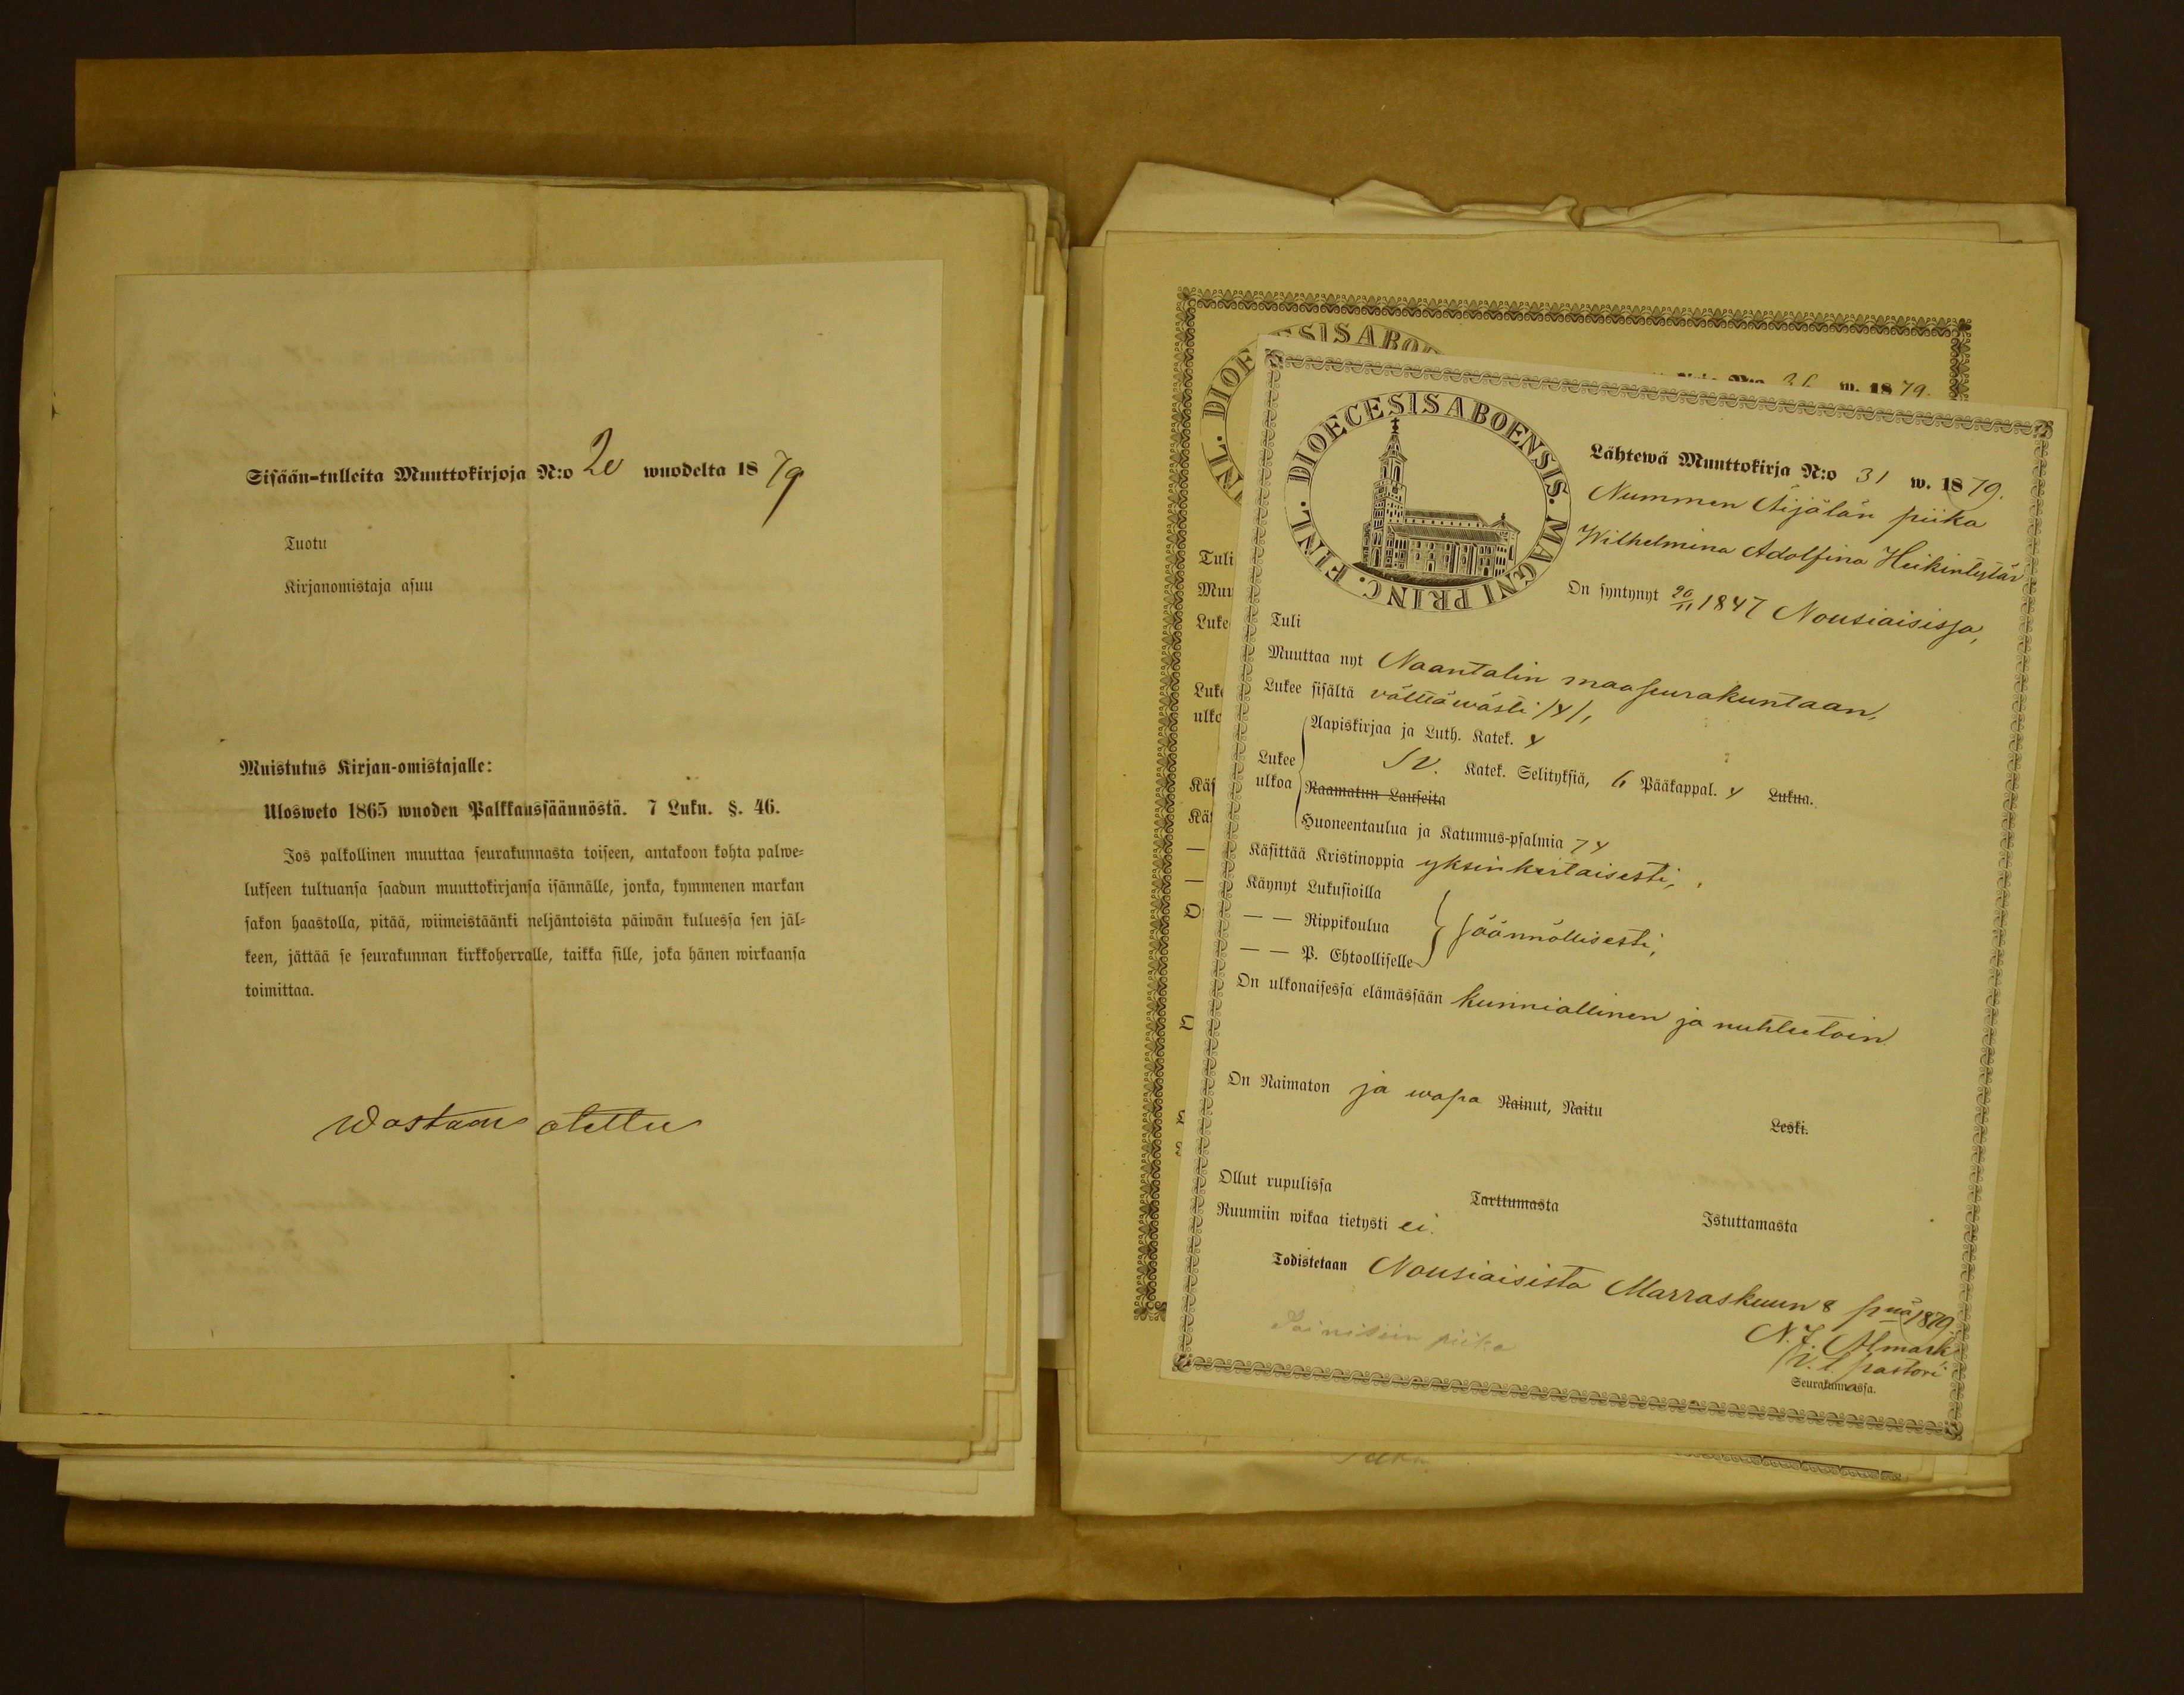 Sisään-tulleita Muuttokirjoja N:o 20 wuodelta 1879
Tuotu
Kirjanomistaja asuu
Muistutus Kirjan-omistajalle:
Ulosweto 1865 wuoden Palkkaussäännöstä. 7 Luku. §. 46.
Jos palkollinen muuttaa seurakunnasta toiseen, antakoon kohta palwe-
lukseen tultuansa saadun muuttokirjansa isännälle, jonka, kymmenen markan
sakon haastolla, pitää, wiimeistäänki neljäntoista päiwän kuluessa sen jäl-
keen, jättää se seurakunnan kirkkoherralle, taikka sille, joka hänen wirkaansa
toimittaa.
Wastaan otettu
w. 1879.
DIOECESIS ABOENSIS. MAGNI PRINC. FINL.
Lähtewä Muuttokirja N:o 31 w. 1879.
Nummen Äijälän piika
Wilhelmina Adolfina Heikintytär
On syntynyt 20/11 1847 Nousiaisissa,
Tuli
Muuttaa nyt Naantalin maaseurakuntaan,
Lukee sisältä välttäwästi /4/,
Lukee ulkoa
Aapiskirjaa ja Luth. Katek. 4
Sv. Katek. Selityksiä, 6 Pääkappal. 4 Lukua.
Raamatun Lauseita
Huoneentaulua ja Katumus-psalmia 7 4
Käsittää Kristinoppia yksinkertaisesti,
Käynyt Lukusioilla
— — Rippikoulua säännöllisesti,
— — P. Ehtoolliselle
On ulkonaisessa elämässään kunniallinen ja nuhteetoin.
On Naimaton ja wapa Nainut, Naitu Leski.
Ollut rupulissa Tarttumasta Istuttamasta
Ruumiin wikaa tietysti ei.
Todistetaan Nousiaisista Marraskuun 8 pnä 1879
N. F. Almark
V. t. pastori
Seurakunnassa.
piika